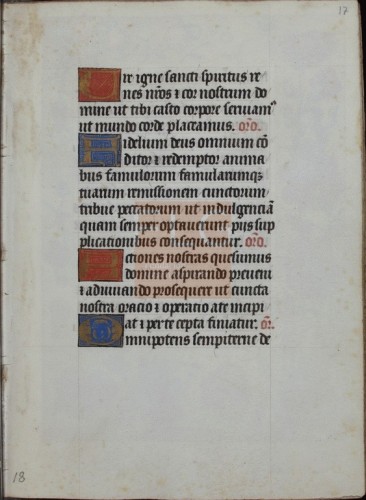 17
Ure igne sancti spiritus re
nes nr̄os ⁊ cor nostrum do
mine ut tibi casto corpore seruiamꝰ
ut mundo corde placeamus. or̄o.
Fidelium deus omnium cō
ditor ⁊ redemptor anima
bus famulorum famularumqꝫ
tuarum remissionem cunctorum
tribue peccatorum ut indulgenciā
quam semper optauerunt pijs sup
plicationibus consequantur. or̄o.
Actiones nostras quesumus
domine aspirando preueni
⁊ adiuuando prosequere ut cuncta
nostra oracio ⁊ operatio a te incipi
at ⁊ per te cepta finiatur. or̄.
Omnipotens sempiterne de
18